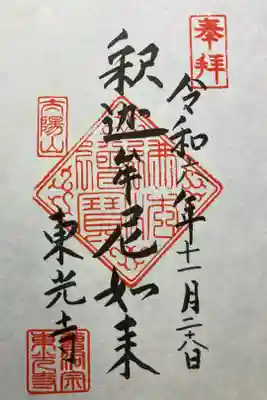 奉拝
令和六年十一月二十八日
釈迦牟尼如来
太陽山
東光寺
佛法僧寶